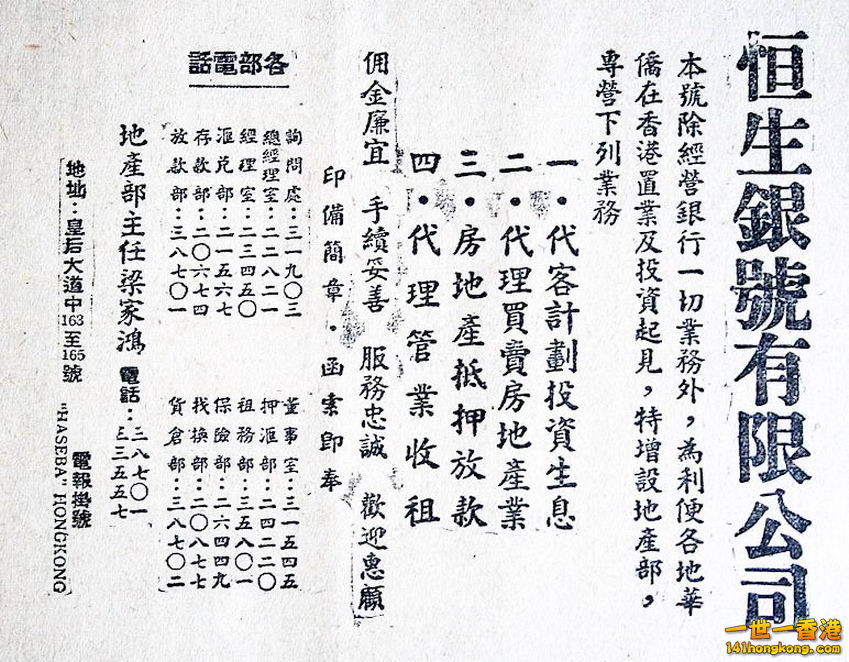 恒生銀號有限公司
本號除經營銀行一切業務外，為利便各地華
僑在香港置業及投資起見，特增設地產部，
專營下列業務
一·代客計劃投資生息
二·代理買賣房地產業
三·房地產抵押放款
四·代理管業收租
佣金廉宜　手續妥善　服務忠誠　歡迎惠顧
印備簡章·函索即奉
各部電話
詢問處：三一九〇三
總經理室：二二八二一
經理室：二三四五〇
滙兑部：二一五六七
存款部：二〇六七四
放款部：三八七〇一
董事室：三一五四五
押滙部：二四二二〇
租務部：三五八〇一
保險部：二六四四九
找換部：二〇八七七
貨倉部：三八七〇二
地產部主任梁家鴻 電話：三八七〇一
三三五五七
地址：皇后大道中163至165號
電報掛號
"HASEBA" HONGKONG
一世一香港
141hongkong.com